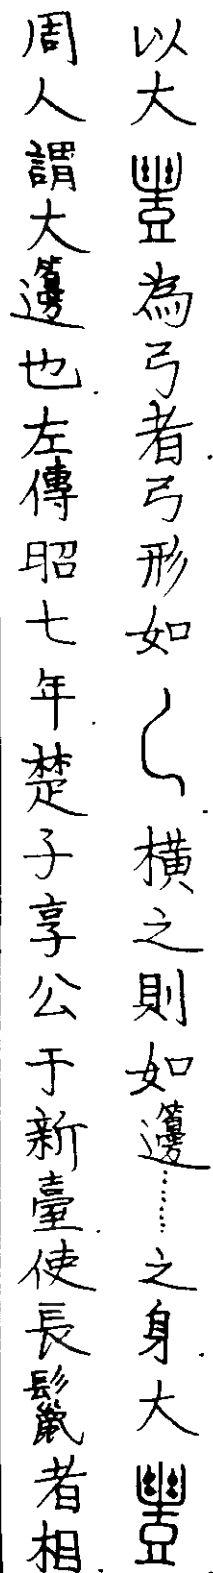 以大豐為弓者弓形如橫之則如籩……之身大豐
周人謂大籩也左傳昭七年楚子享公于新臺使長鬣者相